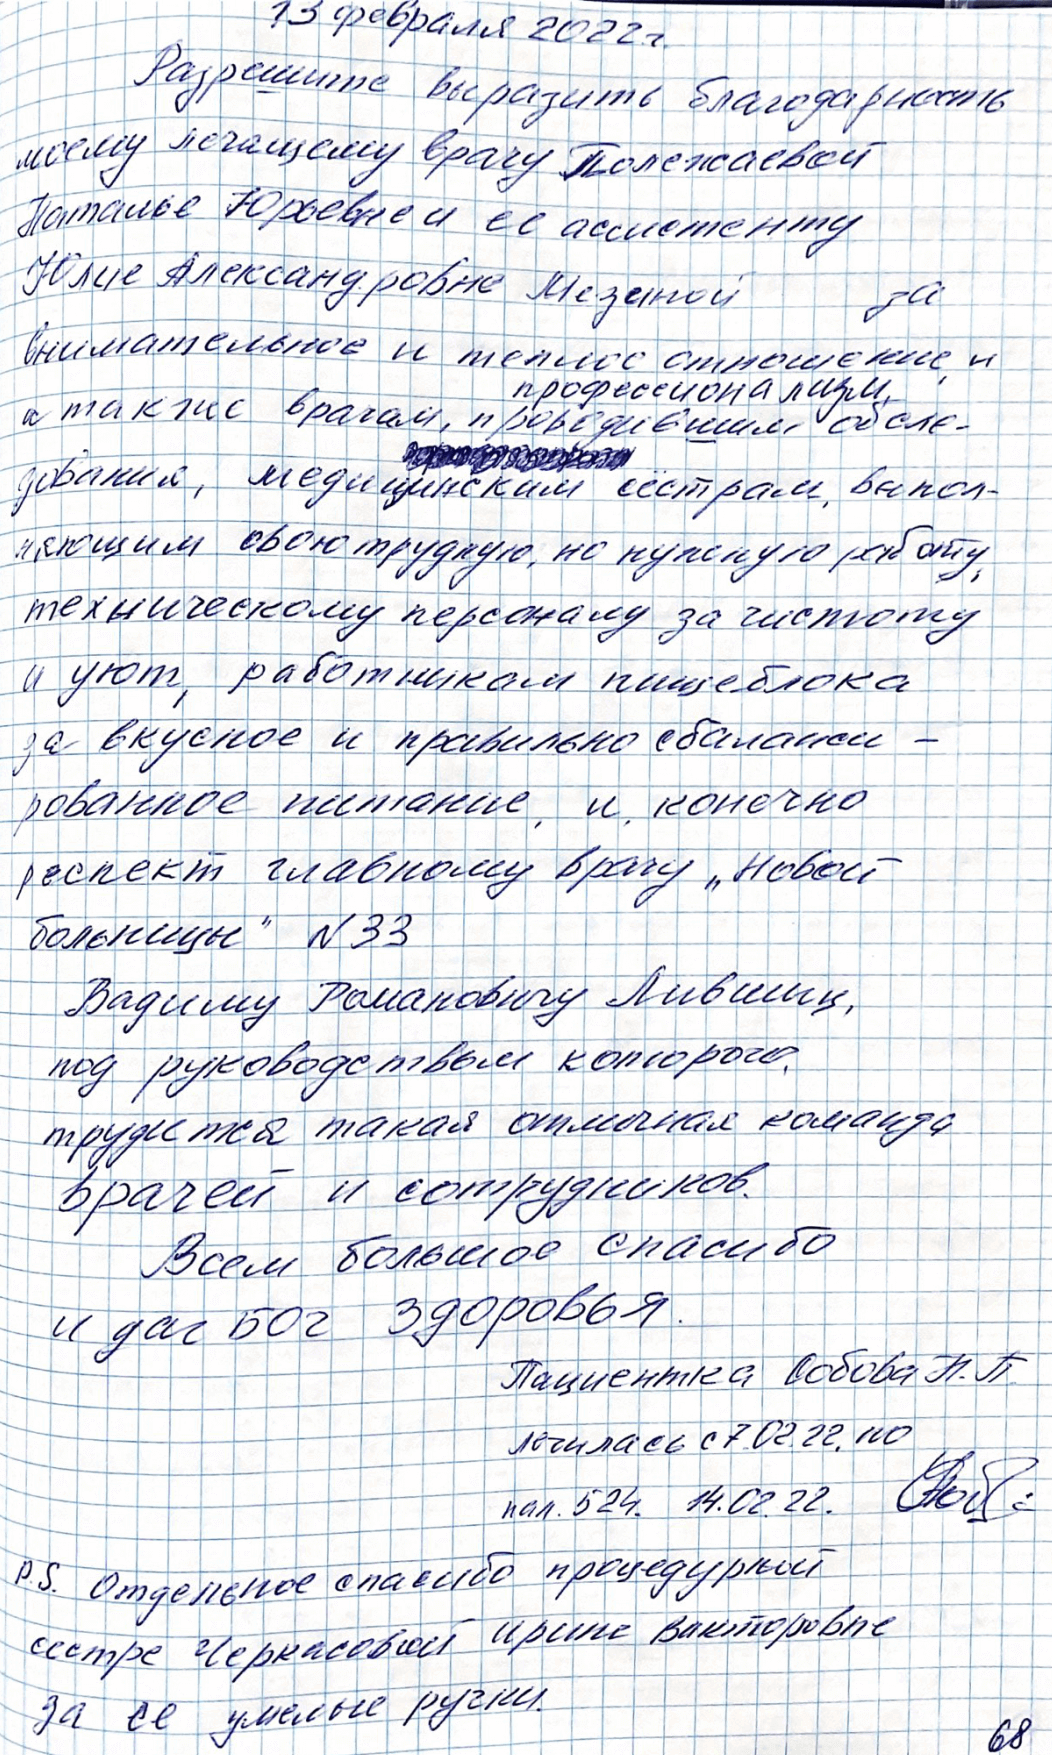 13 февраля 2022г.
Разрешите выразить благодарность
моему лечащему врачу Полежаевой
Наталье Юрьевне и ее ассистенту
Юлие Александровне Мезеной за
внимательное и теплое отношение, и
профессионализм,
а также врачам, проводившим обсле-
дования, медицинским сёстрам, выпол-
няющим свою трудную, но нужную работу,
техническому персоналу за чистоту
и уют, работникам пищеблока
за вкусное и правильно сбаланси-
рованное питание, и, конечно
респект главному врачу „Новой
больницы" N 33
Вадиму Романовичу Лившиц,
под руководством которого,
трудится такая отличная команда
врачей и сотрудников.
Всем большое спасибо
и дай БОГ здоровья.
Пациентка Собова Н.П.
лечилась с 7.02.22. по
пал. 524. 14.02.22.
P.S. Отдельное спасибо процедурной
сестре Черкасовой Ирине Викторовне
за ее умелые ручки.
68